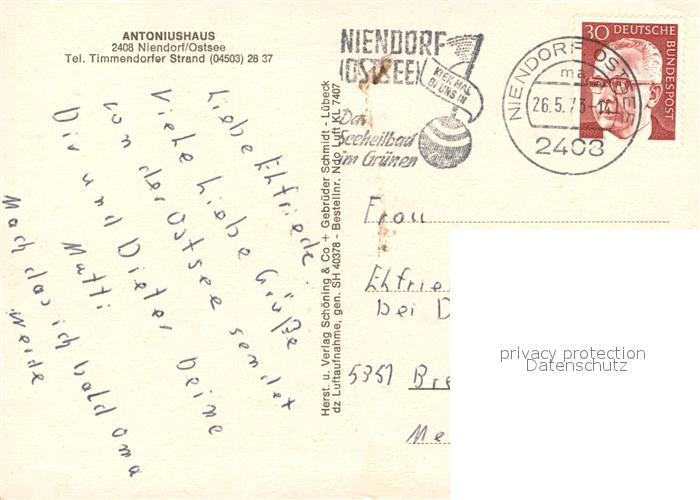 ANTONIUSHAUS
2408 Niendorf/Ostsee
Tel. Timmendorfer Strand (04503) 28 37
NIENDORF
(OSTSEE)
KIEK MAL
BI UNS IN
Das
Seeheilbad
im Grünen
NIENDORF, OSTSEE
ma
26.5.73-11
2408
30 DEUTSCHE
BUNDESPOST
Liebe Elfriede.
Viele Liebe Grüße
von der Ostsee sendet
Dir und Dieter Deine
Mutti
Mach das ich bald Oma
werde
Herst. u. Verlag Schöning & Co + Gebrüder Schmidt - Lübeck
dz Luftaufnahme, gen. SH 40378 - Bestellnr. Ndo Luft KL 7407
Frau
Elfrie
bei D
5351 Bre
Me
privacy protection
Datenschutz